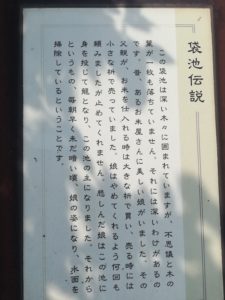 袋池伝説
この袋池は深い木々に囲まれていますが、不思議と木の
葉が一枚も落ちていません。それには深いわけがあるの
です。昔、あるお米屋さんに美しい娘がいました。その
父親が、お米を仕入れる時は大きな枡で買い、売る時には
小さな枡で売っていました。娘はやめてくれるよう何回も
頼みましたが止めてくれません。悲しんだ娘はこの池に
身を投じて龍となり、この池の主になりました。それから
というもの、毎朝早く未だ暗い頃、娘の姿になり、水面を
掃除しているということです。